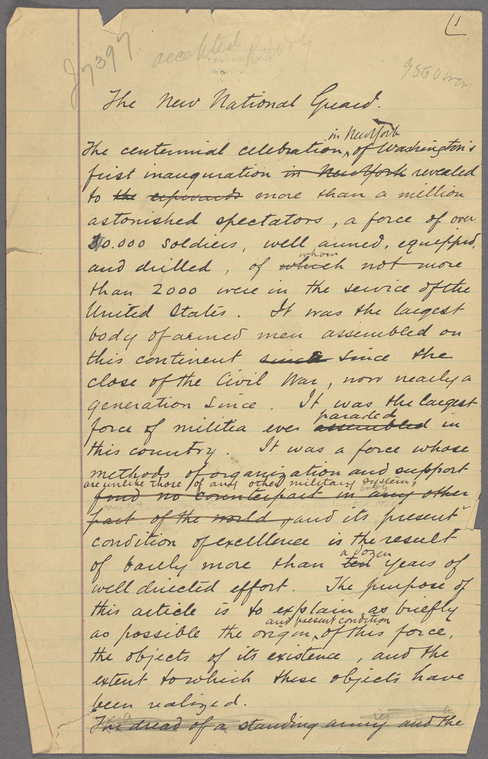 1
J7397
accepted
The New National Guard.
in New York
The centennial celebration ^ of Washington's
first inauguration in New York revealed
to the more than a million
astonished spectators, a force of over
30.000 soldiers, well armed, equipped,
whom
and drilled, of which not more
than 2000 were in the service of the
United States. It was the largest
body of armed men assembled on
this continent since since the
close of the Civil War, now nearly a
generation since. It was the largest
paraded
force of militia ever assembled in
this country. It was a force whose
methods of organization and support
are unlike those of any other military system,
find no counterpart in any other
part of the world, and its present
condition of excellence is the result
a dozen
of barely more than ten years of
well directed effort. The purpose of
this article is to explain as briefly
and present condition
as possible the origin ^ of this force,
the objects of its existence, and the
extent to which these objects have
been realized.
The dread of a standing army and the